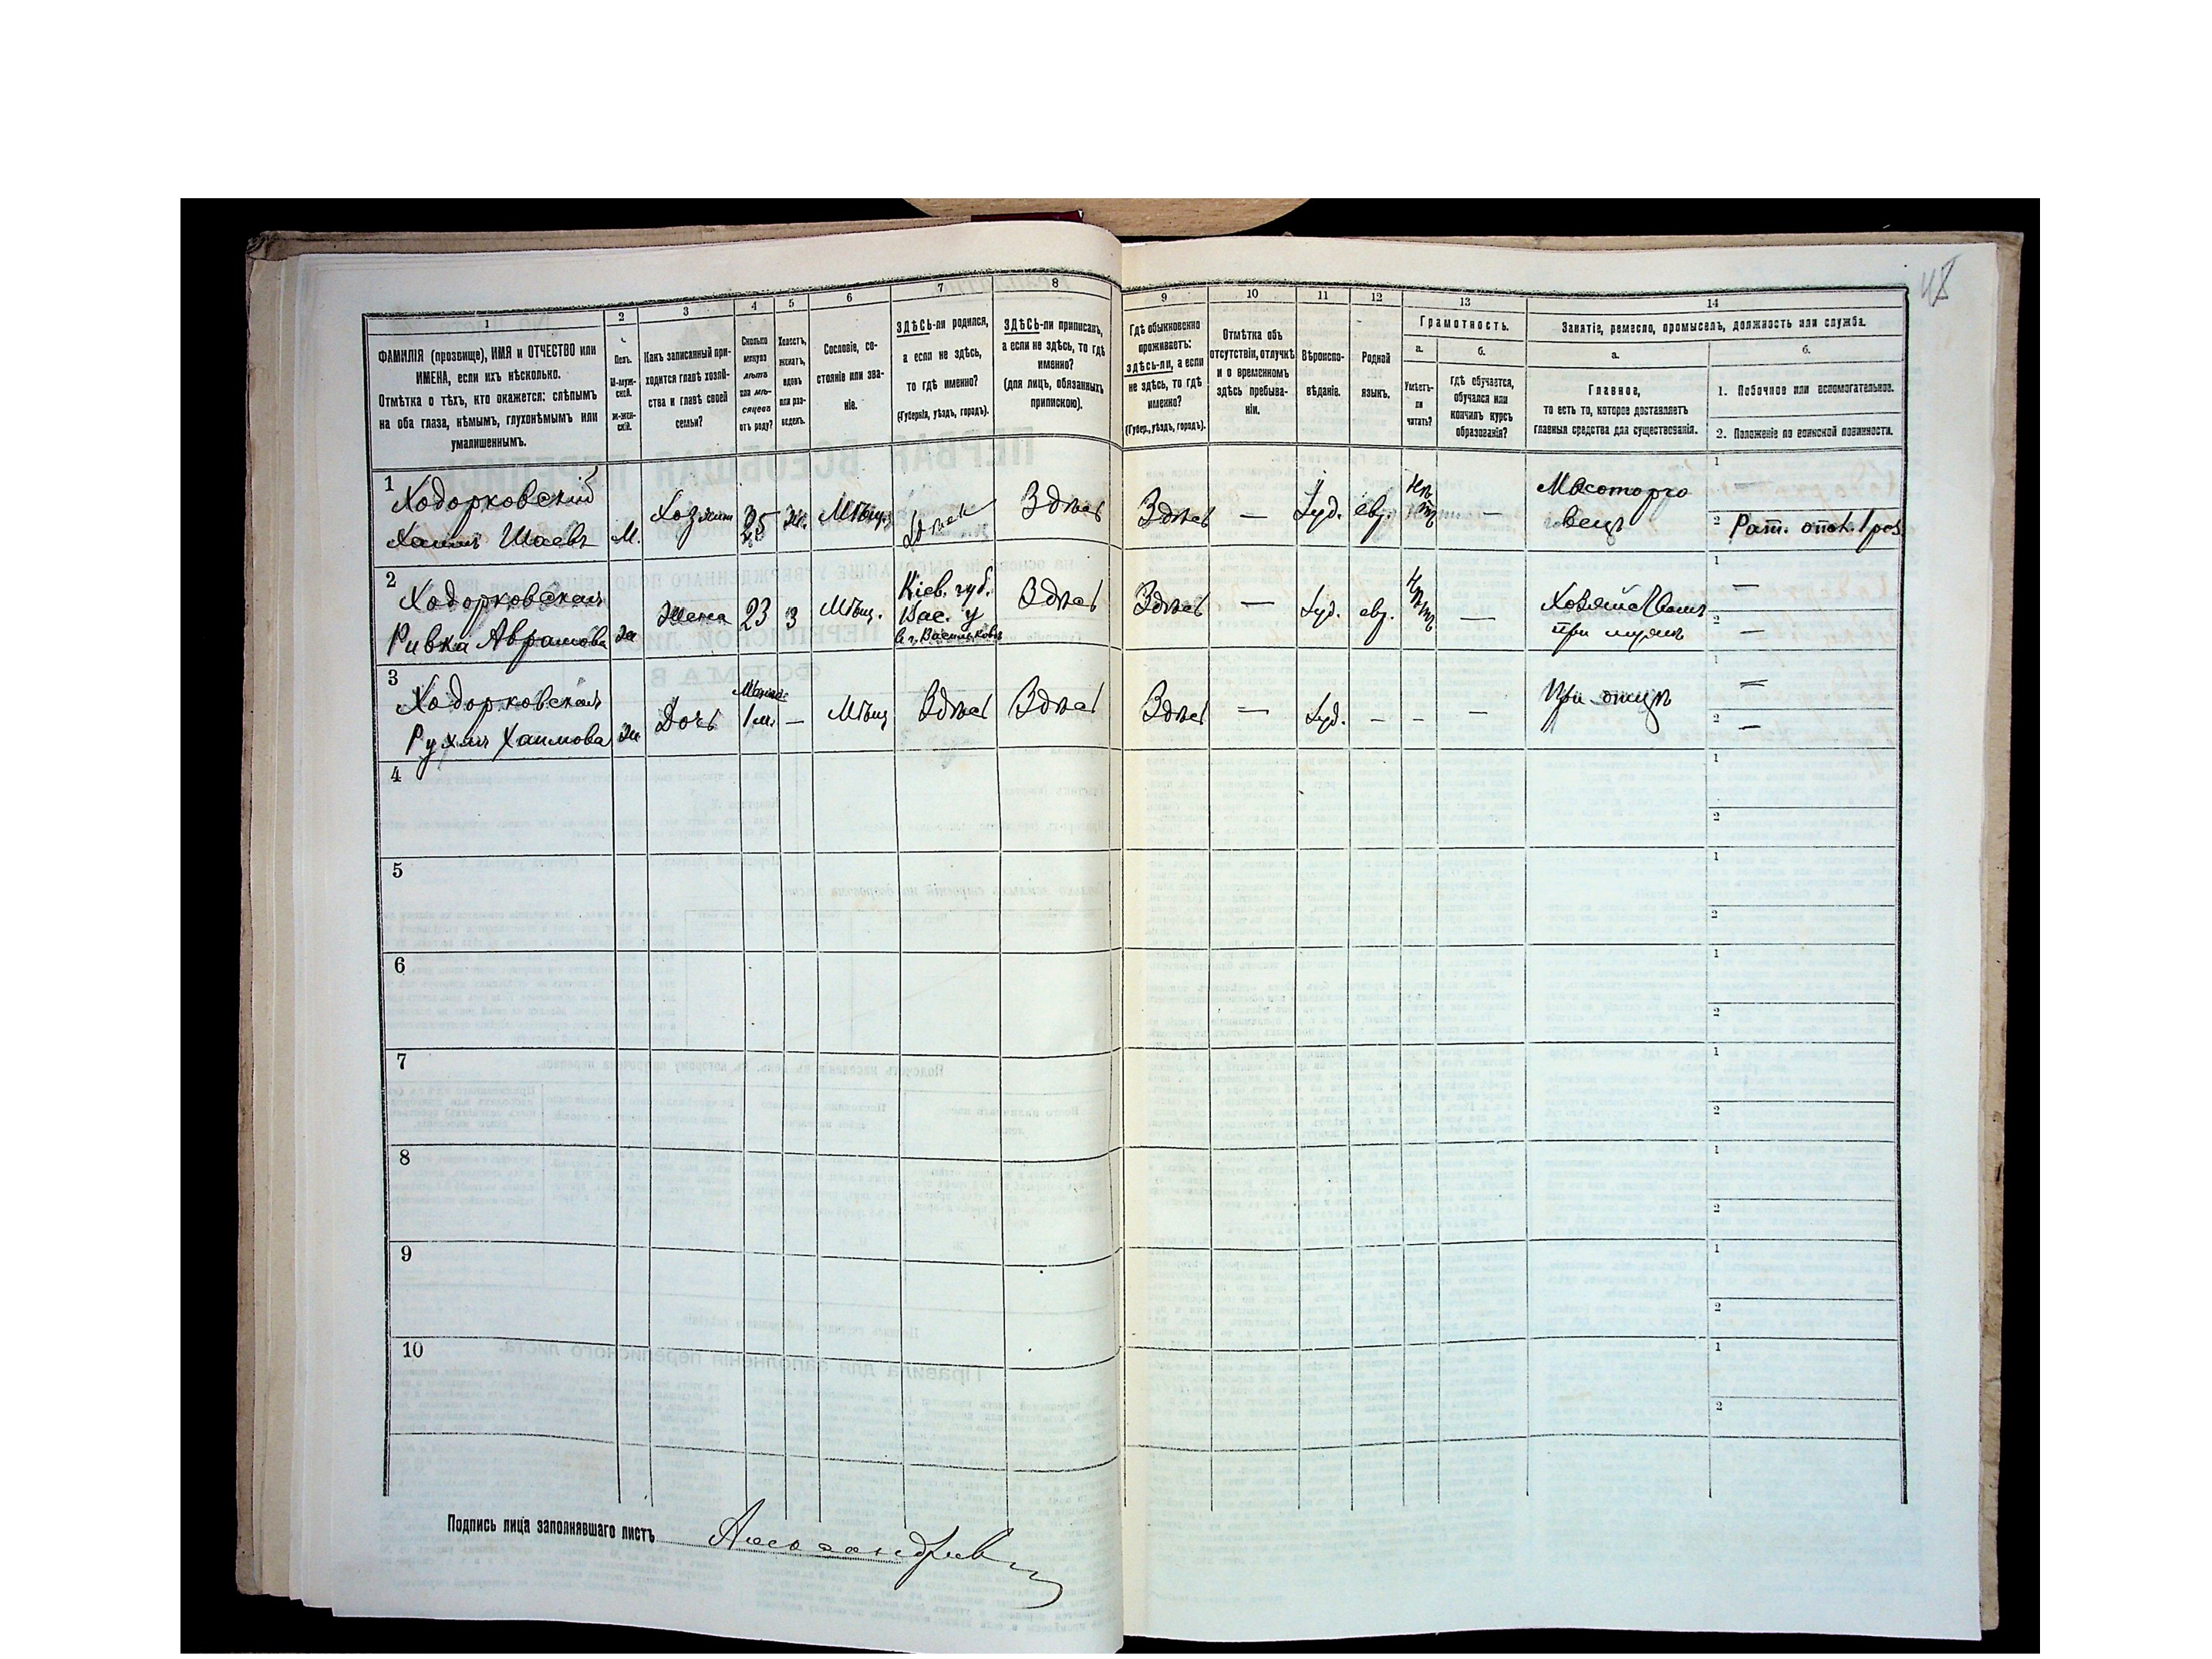 48
1 2 3 4 5 6 7 8 9 10 11 12 13 14
ФАМИЛІЯ (прозвище), ИМЯ и ОТЧЕСТВО или
ИМЕНА, если ихъ нѣсколько.
Отмѣтка о тѣхъ, кто окажется: слѣпымъ
на оба глаза, нѣмымъ, глухонѣмымъ или
умалишеннымъ.
Полъ.
М-муж-
ской.
Ж-жен-
скій.
Какъ записанный при-
ходится главѣ хозяй-
ства и главѣ своей
семьи?
Сколько
минуло
лѣтъ
или мѣ-
сяцевъ
отъ роду?
Холостъ,
женатъ,
вдовъ
или раз-
веденъ.
Сословіе, со-
стояніе или зва-
ніе.
ЗДѢСЬ-ли родился,
а если не здѣсь,
то гдѣ именно?
(Губернія, уѣздъ, городъ).
ЗДѢСЬ-ли приписанъ,
а если не здѣсь, то гдѣ
именно?
(для лицъ, обязанныхъ
припискою).
Гдѣ обыкновенно
проживаетъ:
здѣсь-ли, а если
не здѣсь, то гдѣ
именно?
(Губер., уѣздъ, городъ).
Отмѣтка объ
отсутствіи, отлучкѣ
и о временномъ
здѣсь пребыва-
ніи.
Вѣроиспо-
вѣданіе.
Родной
языкъ.
Грамотность.
а.
Умѣетъ-
ли
читать?
б.
гдѣ обучается,
обучался или
кончилъ курсъ
образованія?
Занятіе, ремесло, промыселъ, должность или служба.
а.
Главное,
то есть то, которое доставляетъ
главныя средства для существованія.
б.
1. Побочное или вспомогательное.
2. Положеніе по воинской повинности.
1
Ходорковскій
Хаимъ Шаевъ
М.
Хозяинъ
25
Ж.
Мѣщ.
Здѣсь
Здѣсь
—
Іуд.
евр.
Нѣтъ
—
Мясоторго
вецъ
1 —
2 Рат. опол. 1 роз
2
Ходорковская
Ривка Аврамова
Ж
Жена
23
З
Мѣщ.
Кіев. губ.
Вас. у
в г. Васильковѣ
Здѣсь
Здѣсь
—
Іуд.
евр.
Нѣтъ
—
Хозяйка
при мужѣ
1 —
2 —
3
Ходорковская
Рухля Хаимова
Ж
Дочь
1 м.
—
Мѣщ
Здѣсь
Здѣсь
Здѣсь
—
Іуд.
—
—
—
При отцѣ
1 —
2 —
4
1
2
5
1
2
6
1
2
7
1
2
8
1
2
9
1
2
10
1
2
Подпись лица заполнявшаго листъ